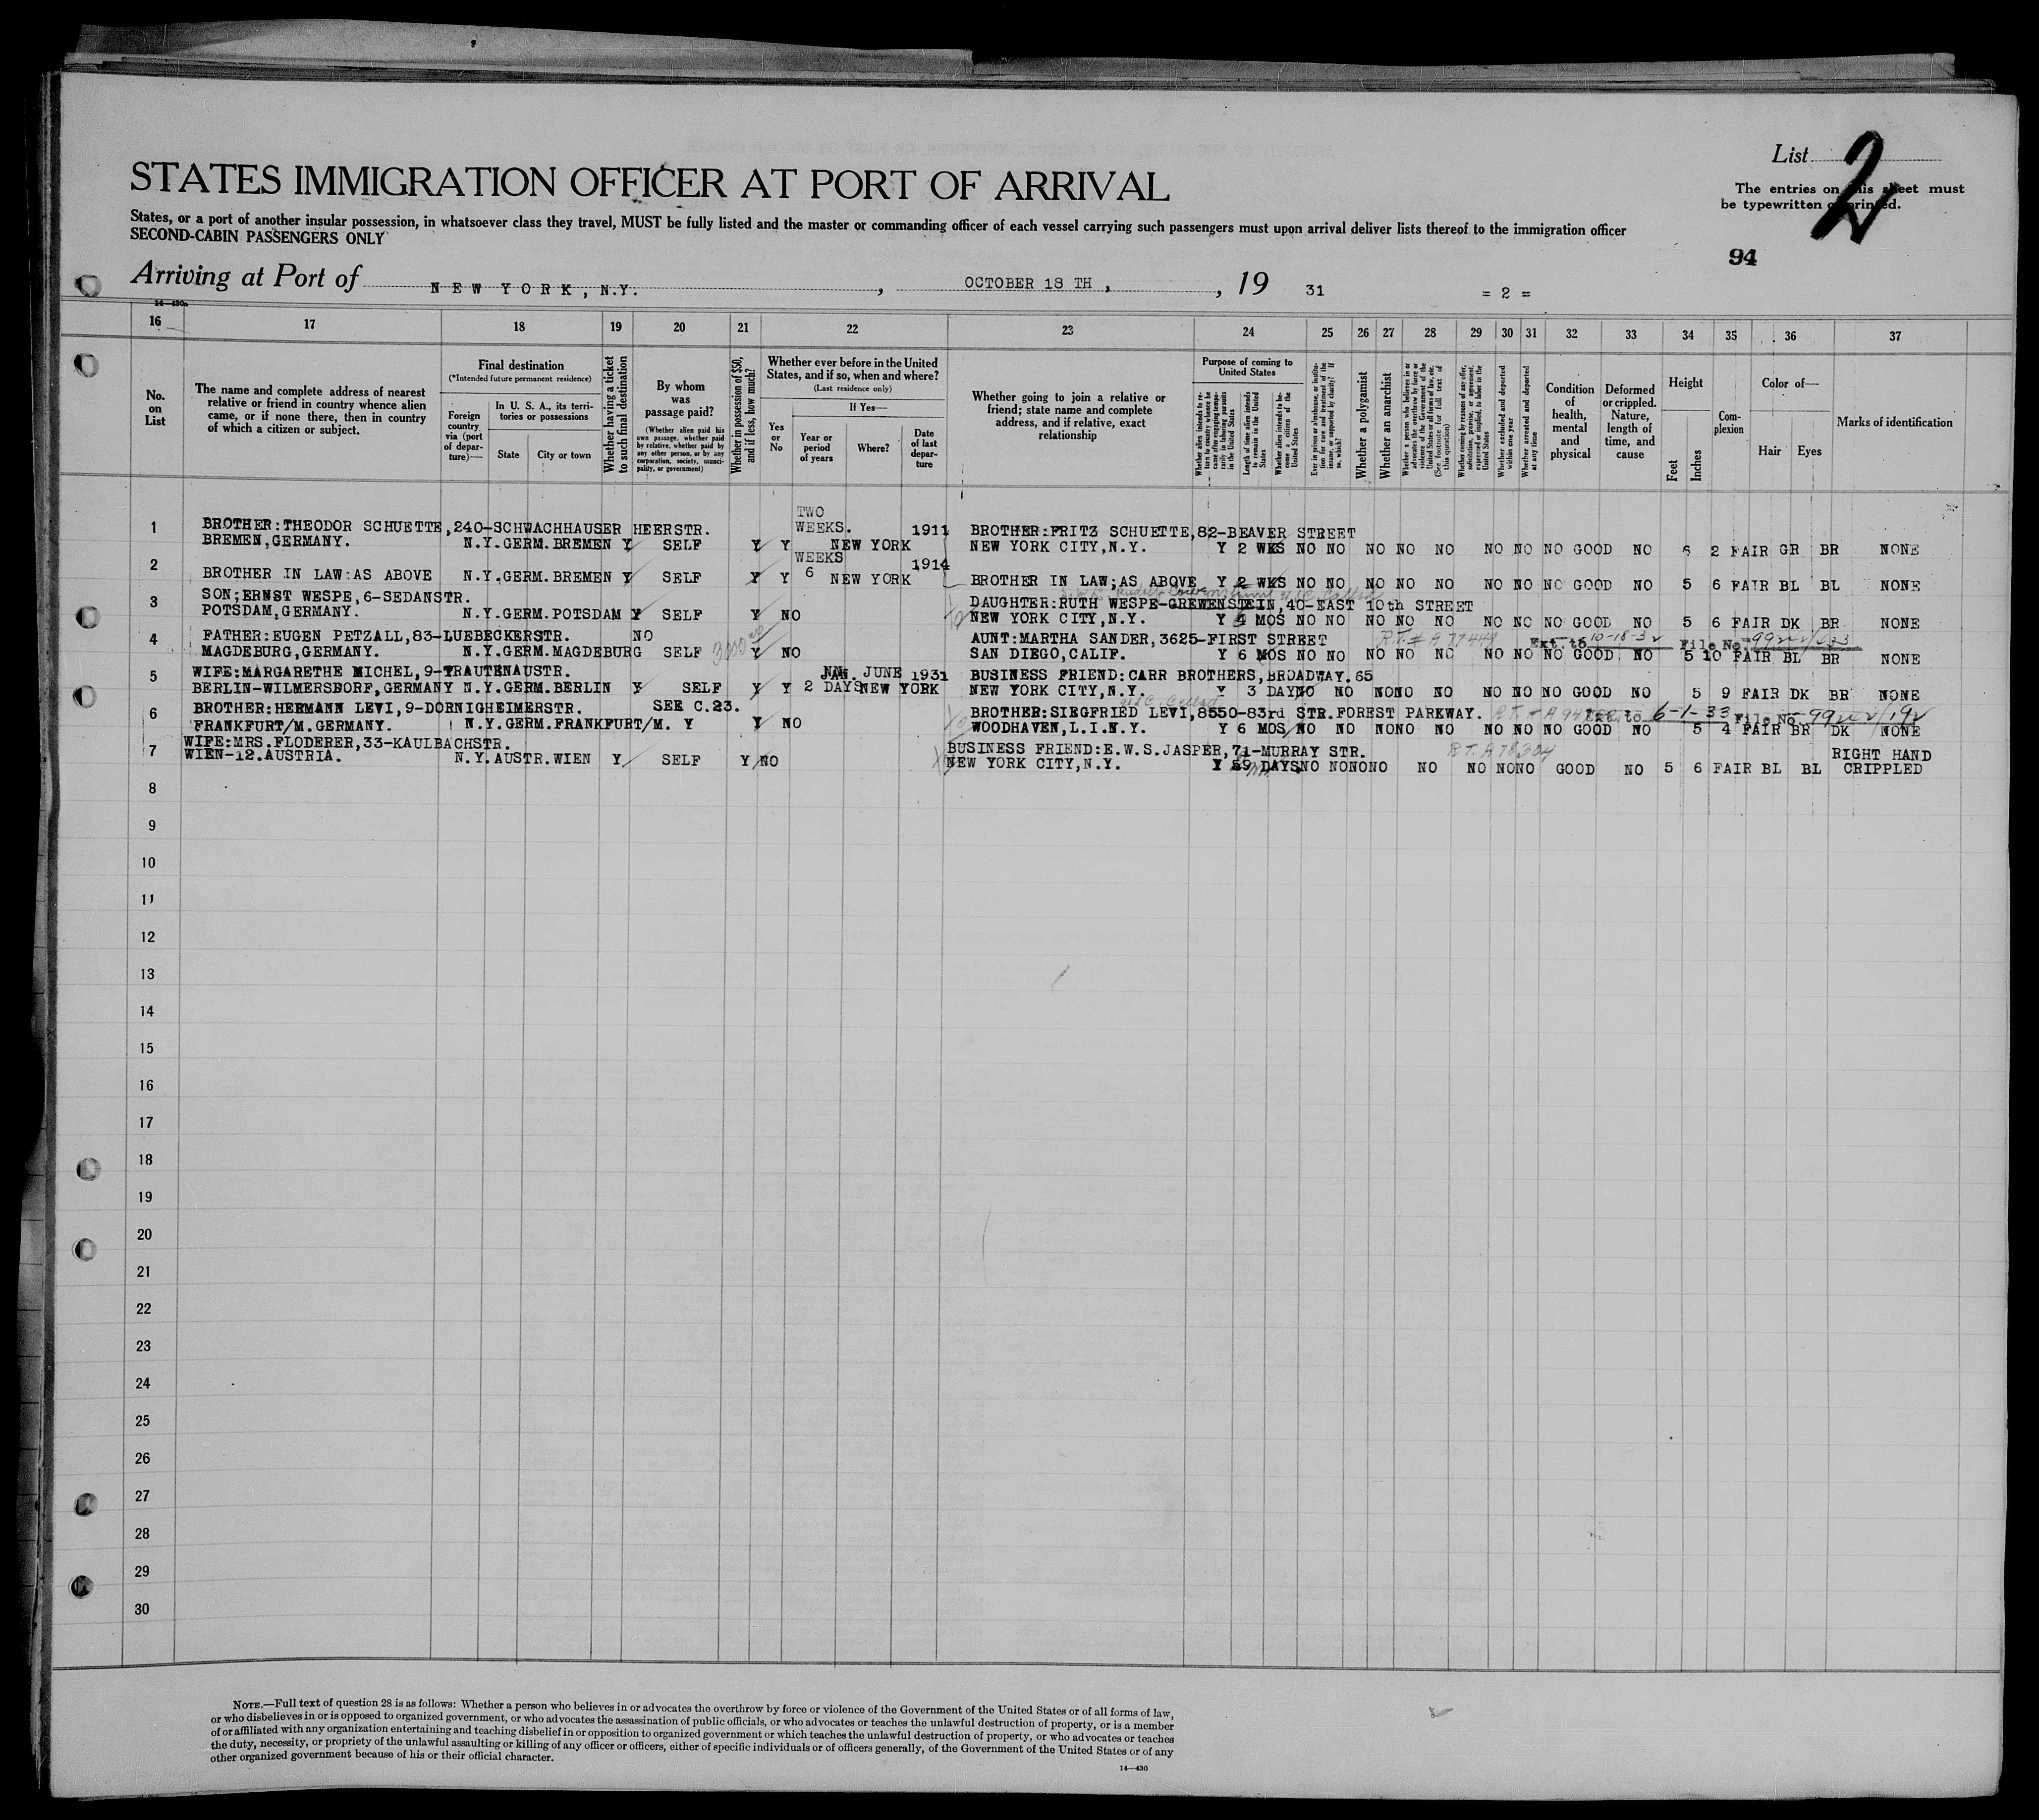 List 2
STATES IMMIGRATION OFFICER AT PORT OF ARRIVAL
The entries on this sheet must
be typewritten or printed.
States, or a port of another insular possession, in whatsoever class they travel, MUST be fully listed and the master or commanding officer of each vessel carrying such passengers must upon arrival deliver lists thereof to the immigration officer
SECOND-CABIN PASSENGERS ONLY
94
Arriving at Port of NEW YORK, N.Y. , OCTOBER 18 TH , , 19 31 = 2 =
14—430a
16 17 18 19 20 21 22 23 24 25 26 27 28 29 30 31 32 33 34 35 36 37
No. on List
The name and complete address of nearest relative or friend in country whence alien came, or if none there, then in country of which a citizen or subject.
Final destination
(*Intended future permanent residence)
Foreign country via (port of departure)—
In U. S. A., its territories or possessions
State
City or town
Whether having a ticket to such final destination
By whom was passage paid?
(Whether alien paid his own passage, whether paid by relative, whether paid by any other person, or by any corporation, society, municipality, or government)
Whether in possession of $50, and if less, how much?
Whether ever before in the United States, and if so, when and where?
(Last residence only)
Yes or No
If Yes—
Year or period of years
Where?
Date of last departure
Whether going to join a relative or friend; state name and complete address, and if relative, exact relationship
Purpose of coming to United States
Whether alien intends to return to country whence he came after engaging temporarily in laboring pursuits in the United States
Length of time alien intends to remain in the United States
Whether alien intends to become a citizen of the United States
Ever in prison or almshouse, or institution for care and treatment of the insane, or supported by charity? If so, which?
Whether a polygamist
Whether an anarchist
Whether a person who believes in or advocates the overthrow by force or violence of the Government of the United States or all forms of law, etc. (See footnote for full text of this question)
Whether coming by reasons of any offer, solicitation, promise, or agreement, expressed or implied, to labor in the United States
Whether excluded and deported within one year
Whether arrested and deported at any time
Condition of health, mental and physical
Deformed or crippled. Nature, length of time, and cause
Height
Feet
Inches
Complexion
Color of—
Hair
Eyes
Marks of identification
TWO
1 BROTHER:THEODOR SCHUETTE,240-SCHWACHHAUSER HEERSTR. WEEKS. 1911 BROTHER:FRITZ SCHUETTE,82-BEAVER STREET
BREMEN,GERMANY. N.Y.GERM.BREMEN Y SELF Y Y NEW YORK NEW YORK CITY,N.Y. Y 2 WKS NO NO NO NO NO NO NO NO GOOD NO 6 2 FAIR GR BR NONE
WEEKS 1914
2 BROTHER IN LAW:AS ABOVE N.Y.GERM.BREMEN Y SELF Y Y 6 NEW YORK BROTHER IN LAW;AS ABOVE Y 2 WKS NO NO NO NO NO NO NO NO GOOD NO 5 6 FAIR BL BL NONE
3 SON;ERNST WESPE,6-SEDANSTR. DAUGHTER:RUTH WESPE-GREWENSTEIN,40-EAST 10th STREET
POTSDAM,GERMANY. N.Y.GERM.POTSDAM Y SELF Y NO NEW YORK CITY,N.Y. Y MOS NO NO NO NO NO NO NO NO GOOD NO 5 6 FAIR DK BR NONE
4 FATHER:EUGEN PETZALL,83-LUEBECKERSTR. NO AUNT:MARTHA SANDER,3625-FIRST STREET R.T.# A 77449 Ext. to 10-18-32 File No.
MAGDEBURG,GERMANY. N.Y.GERM.MAGDEBURG SELF Y NO SAN DIEGO,CALIF. Y 6 MOS NO NO NO NO NO NO NO NO GOOD NO 5 10 FAIR BL BR NONE
5 WIFE:MARGARETHE MICHEL,9-TRAUTENAUSTR. JUNE 1931 BUSINESS FRIEND:CARR BROTHERS,BROADWAY.65
BERLIN-WILMERSDORF,GERMANY N.Y.GERM.BERLIN Y SELF Y Y 2 DAYS NEW YORK NEW YORK CITY,N.Y. Y 3 DAY NO NO NONO NO NO NO NO GOOD NO 5 9 FAIR DK BR NONE
6 BROTHER:HERMANN LEVI,9-DORNIGHEIMERSTR. SEE C.23. BROTHER:SIEGFRIED LEVI,8550-83rd STR.FOREST PARKWAY. Ext. to 6-1-33 File No.
FRANKFURT/M.GERMANY. N.Y.GERM.FRANKFURT/M. Y Y NO WOODHAVEN,L.I.N.Y. Y 6 MOS NO NO NONO NO NO NO NO GOOD NO 5 4 FAIR BR DK NONE
7 WIFE:MRS.FLODERER,33-KAULBACHSTR. BUSINESS FRIEND:E.W.S.JASPER,71-MURRAY STR. R.T. A 78304 RIGHT HAND
WIEN-12.AUSTRIA. N.Y.AUSTR.WIEN Y SELF Y NO NEW YORK CITY,N.Y. Y 59 DAYS NO NONONO NO NO NONO GOOD NO 5 6 FAIR BL BL CRIPPLED
8
9
10
11
12
13
14
15
16
17
18
19
20
21
22
23
24
25
26
27
28
29
30
NOTE.—Full text of question 28 is as follows: Whether a person who believes in or advocates the overthrow by force or violence of the Government of the United States or of all forms of law,
or who disbelieves in or is opposed to organized government, or who advocates the assassination of public officials, or who advocates or teaches the unlawful destruction of property, or is a member
of or affiliated with any organization entertaining and teaching disbelief in or opposition to organized government or which teaches the unlawful destruction of property, or who advocates or teaches
the duty, necessity, or propriety of the unlawful assaulting or killing of any officer or officers, either of specific individuals or of officers generally, of the Government of the United States or of any
other organized government because of his or their official character.
14—430